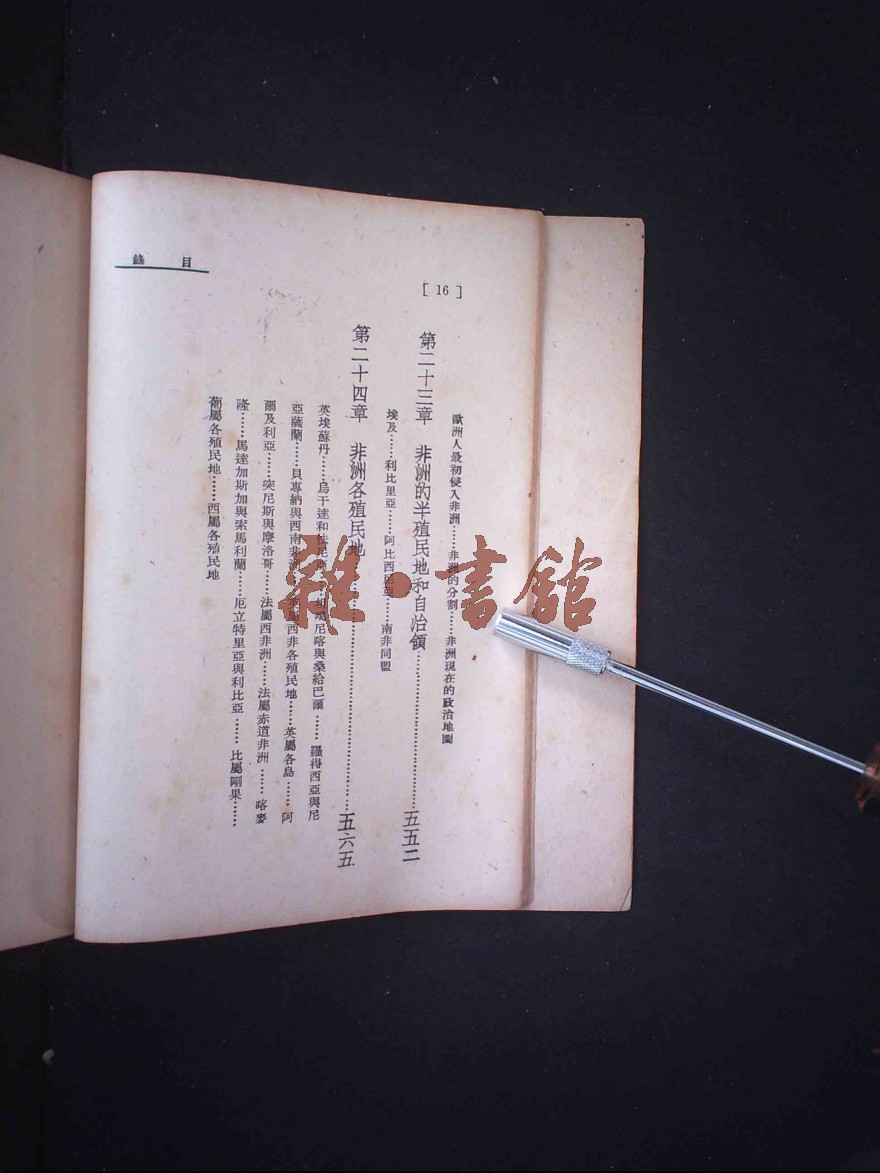 目錄
[ 16 ]
歐洲人最初侵入非洲……非洲的分割……非洲現在的政治地圖
第二十三章 非洲的半殖民地和自治領……五五二
埃及……利比里亞……阿比西尼亞……南非同盟
第二十四章 非洲各殖民地……五六五
英埃蘇丹……烏干達和怯尼亞……坦噶尼喀與桑給巴爾……羅得西亞與尼
亞薩蘭……貝專納與西南非洲……英屬西非各殖民地……英屬各島……阿
爾及利亞……突尼斯與摩洛哥……法屬西非洲……法屬赤道非洲……喀麥
隆……馬達加斯加與索馬利蘭……厄立特里亞與利比亞……比屬剛果……
葡屬各殖民地……西屬各殖民地
雜·書館